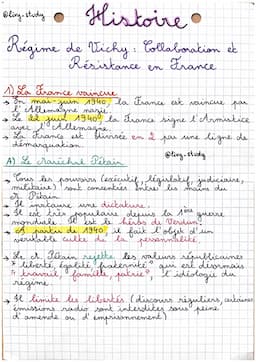 @liny-study
Histoire
Régime de Vichy : Collaboration et
Résistance en France
1) La France vaincue
→ En mai-juin 1940, la France est vaincue par
l'Allemagne nazie.
→ Le 22 juin 1940, la France signe l'Armistice
avec l'Allemagne.
→ La France est divisée en 2 par une ligne de
démarquation.
@liny-study
A) Le Maréchal Pétain
→ Tous les pouvoirs (exécutif, législatif, judiciaire,
militaire) sont concentrés entre les mains du
M. Pétain
→ Il instaure une dictature.
→ Il est très populaire depuis la 1ère guerre
mondiale. Il est le "héros de Verdun".
→ A partir de 1940, il fait l'objet d'un
véritable culte de la personnalité.
→ Le M. Pétain rejette les valeurs républicaines
"liberté, égalité, fraternité" qui est désormais
"travail, famille, patrie", l'idéologie du
régime.
→ Il limite les libertés (discours réguliers, certaines
émissions radio sont interdites sous peine
d'amende ou d'emprisonnement)